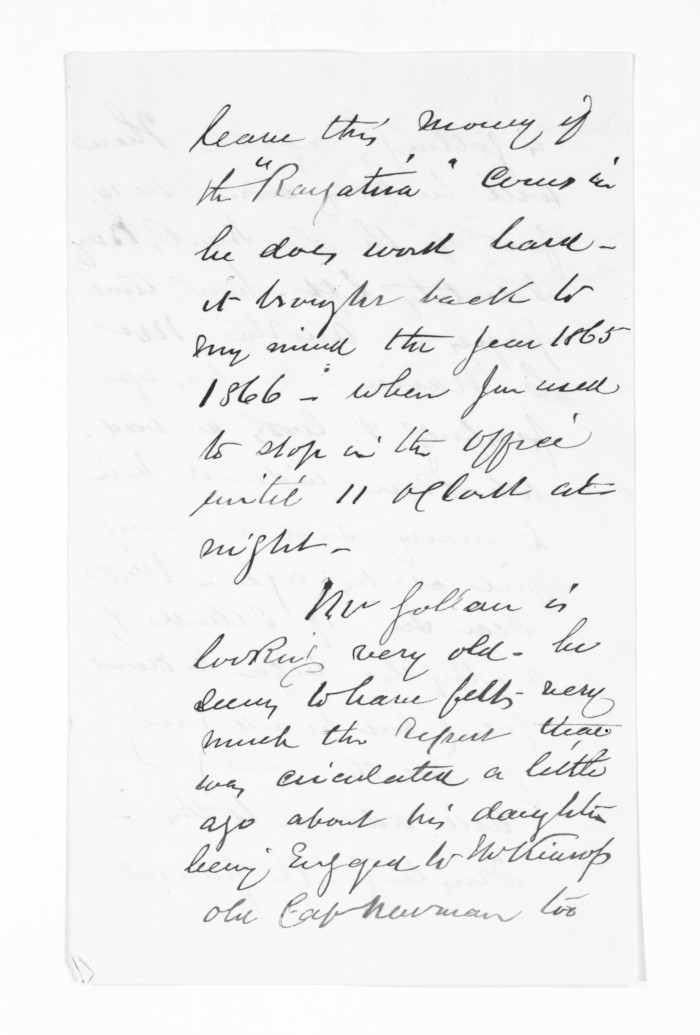 leave this money if
the "Rangatira" comes in
he does work hard –
it brought back to
my mind the year 1865
1866 – when you used
to stop in the Office
until 11 oClock at
night –
Mr Gollan is
looking very old – he
seems to have felt very
much the report that
was circulated a little
ago about his daughter
being Engaged to
old Capt Newman too